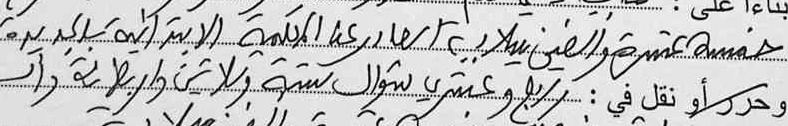 بناءا على :
خمسة عشرة وألفين ميلادية الصادر عن المحكمة الابتدائية بالجديدة
وحرر أو نقل في : رابع وعشري شوال ستة وثلاثين واربعمائة وألف